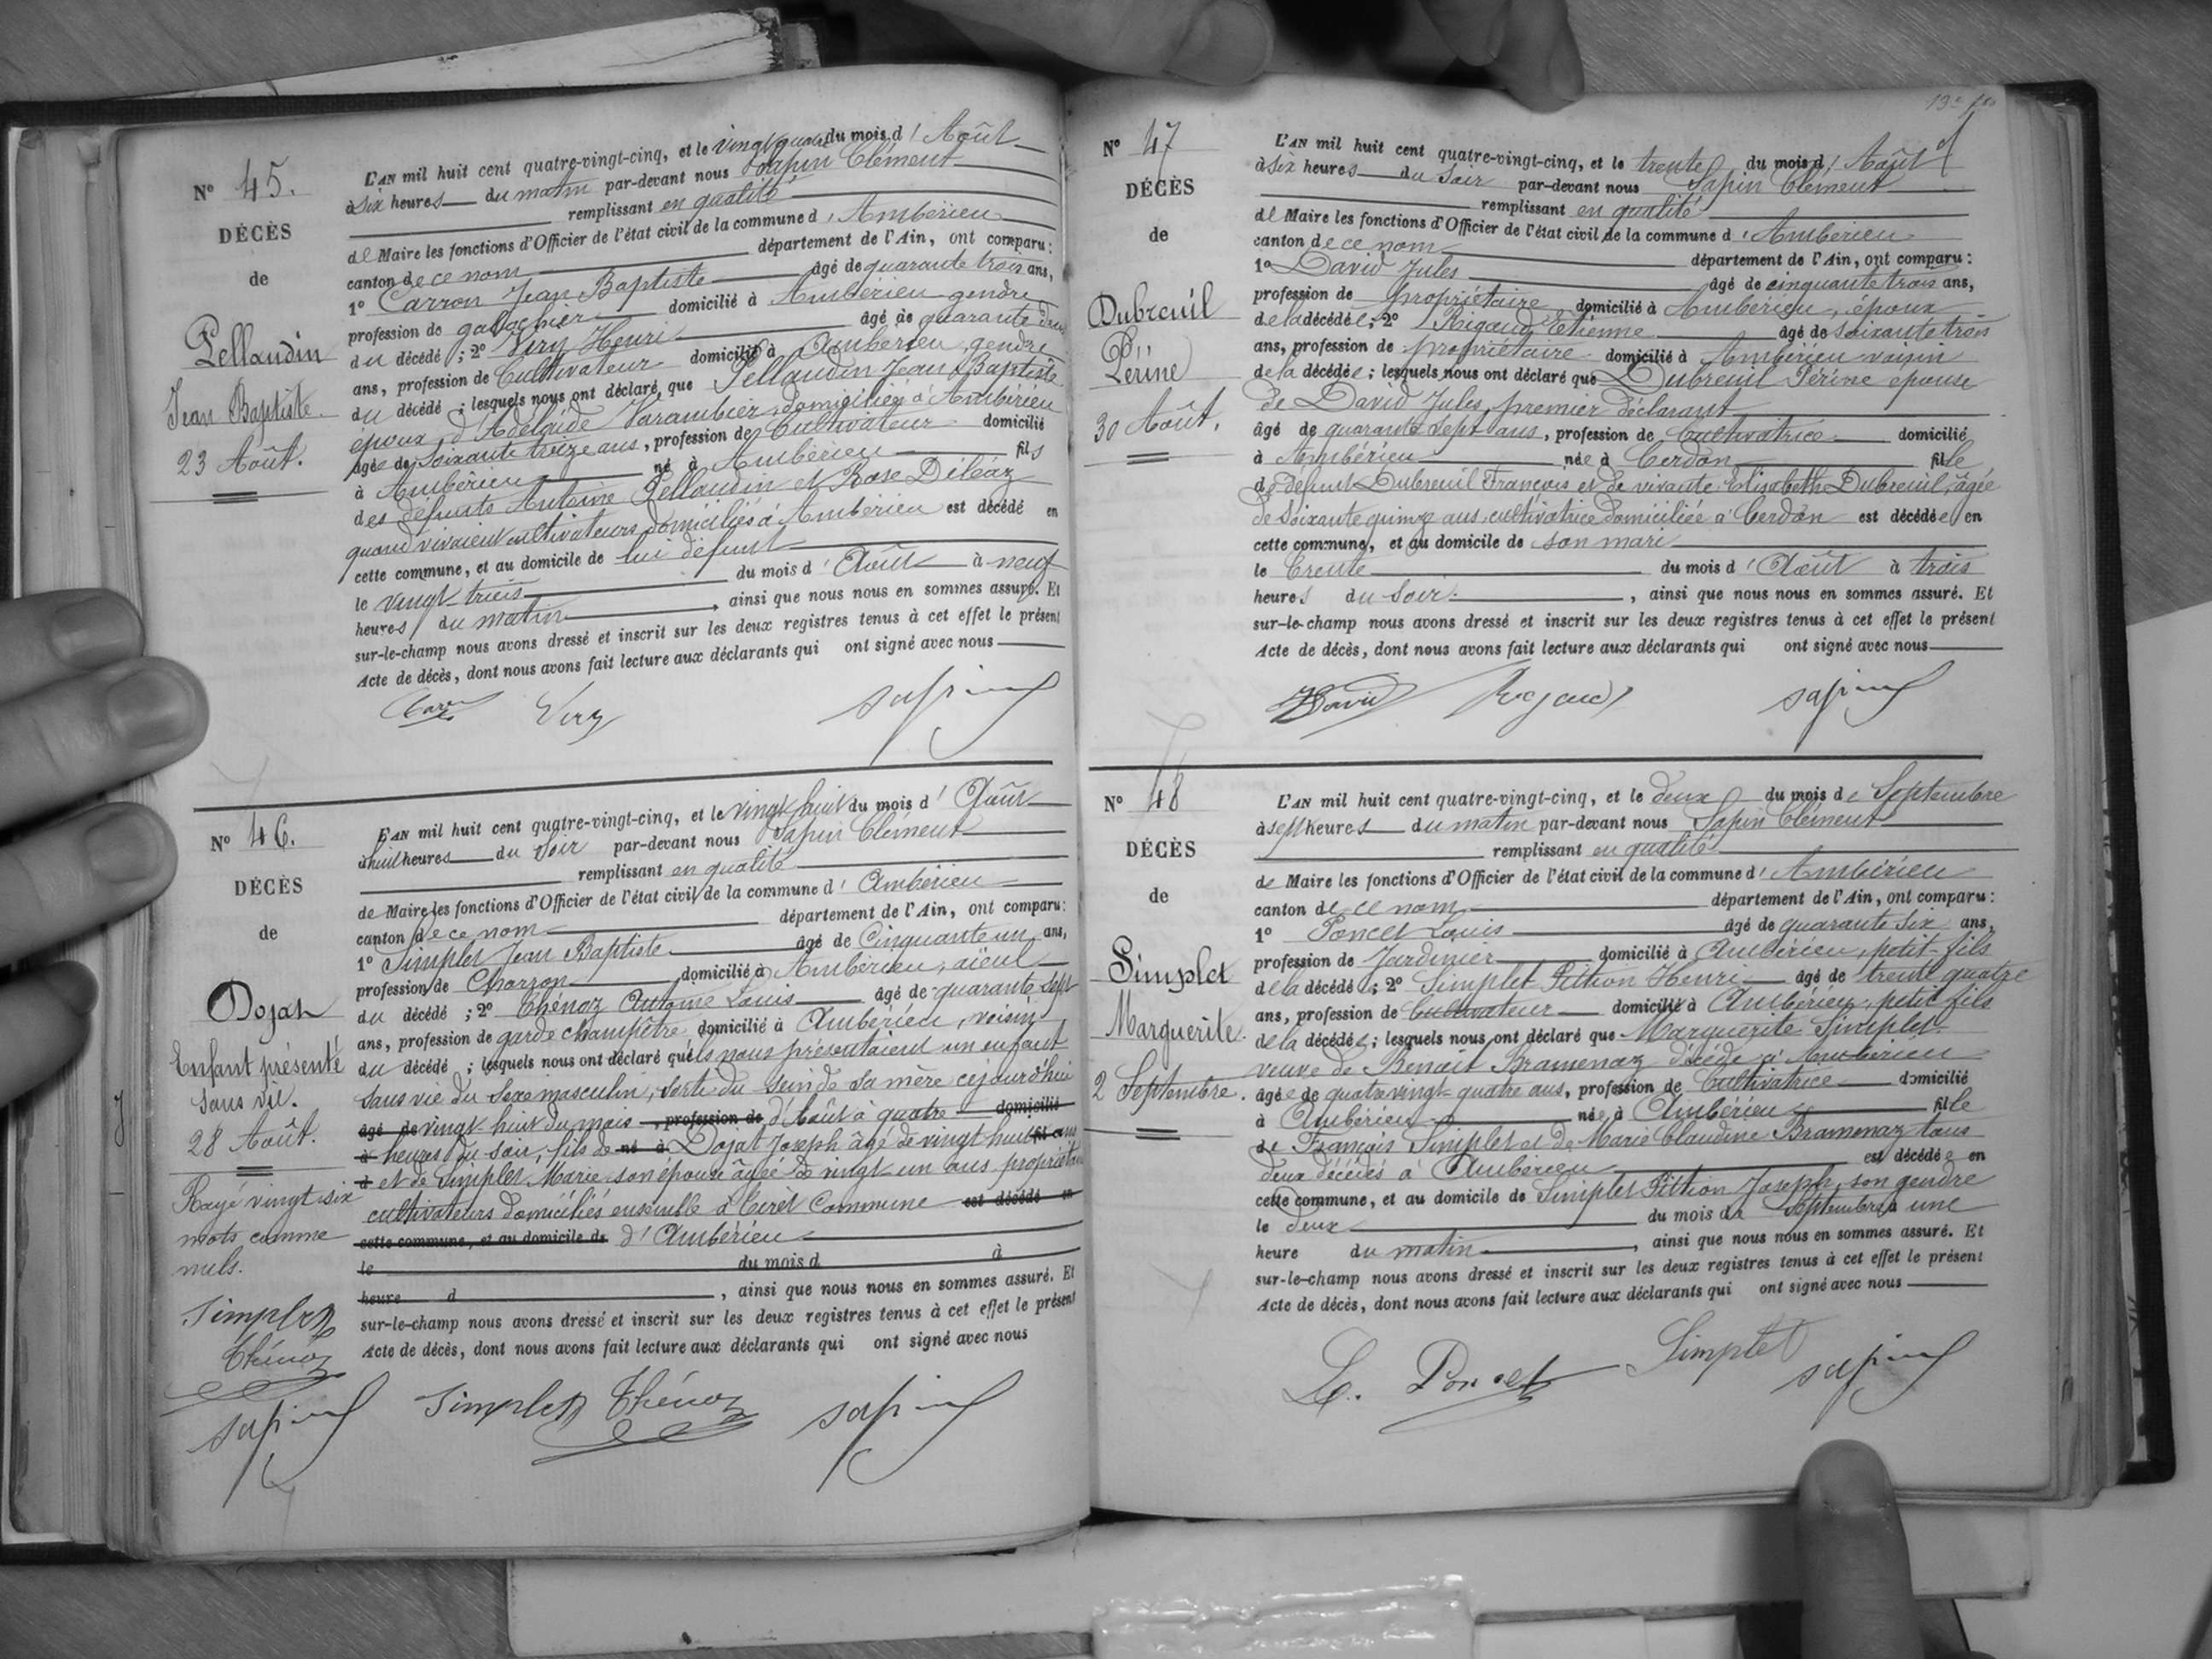 Nº 45.
DÉCÈS
de
Pellaudin
Jean Baptiste
23 Août.
L'AN mil huit cent quatre-vingt-cinq, et le vingt quatre du mois d'Août
à six heures du matin par-devant nous Sapin Clément
remplissant en qualité
de Maire les fonctions d'Officier de l'état civil de la commune d'Ambérieu
canton de ce nom département de l'Ain, ont comparu:
1º Carron Jean Baptiste âgé de quarante trois ans,
profession de galochier domicilié à Ambérieu gendre
du décédé; 2º Véry Henri âgé de quarante
ans, profession de Cultivateur domicilié à Ambérieu, gendre
du décédé; lesquels nous ont déclaré que Pellaudin Jean Baptiste
époux d'Adélaïde Varambier, domiciliée à Ambérieu
âgé de soixante treize ans, profession de Cultivateur domicilié
à Ambérieu né à Ambérieu fils
des défunts Antoine Pellaudin et Rose Déléaz
quand vivaient cultivateurs domiciliés à Ambérieu est décédé en
cette commune, et au domicile de lui défunt
le vingt-trois du mois d'Août à neuf
heures du matin, ainsi que nous nous en sommes assuré. Et
sur-le-champ nous avons dressé et inscrit sur les deux registres tenus à cet effet le présent
Acte de décès, dont nous avons fait lecture aux déclarants qui ont signé avec nous
Very Sapin
Nº 46.
DÉCÈS
de
Dojat
Enfant présenté
sans vie.
28 Août.
Rayé vingt six
mots comme
nuls.
Simplet
Thénoz
Sapin
L'AN mil huit cent quatre-vingt-cinq, et le vingt huit du mois d'Août
à huit heures du soir par-devant nous Sapin Clément
remplissant en qualité
de Maire les fonctions d'Officier de l'état civil de la commune d'Ambérieu
canton de ce nom département de l'Ain, ont comparu:
1º Simplet Jean Baptiste âgé de Cinquante un ans,
profession de Charron domicilié à Ambérieu, aïeul
du décédé; 2º Thénoz Antoine Louis âgé de quarante sept
ans, profession de garde champêtre domicilié à Ambérieu, voisin
du décédé; lesquels nous ont déclaré qu'ils nous présentaient un enfant
sans vie du sexe masculin, sorti du sein de sa mère cejourd'hui
âgé de vingt huit du mois, profession de d'Août à quatre domicilié
à heures du soir, fils de né à Dojat Joseph âgé de vingt huit fil ans
d et de Simplet Marie son épouse âgée de vingt un ans propriétaires
cultivateurs domiciliés ensemble à Commune est décédé en
cette commune, et au domicile de d'Ambérieu
le du mois d à
heure d, ainsi que nous nous en sommes assuré. Et
sur-le-champ nous avons dressé et inscrit sur les deux registres tenus à cet effet le présent
Acte de décès, dont nous avons fait lecture aux déclarants qui ont signé avec nous
Simplet Thénoz Sapin
Nº 47
DÉCÈS
de
Dubreuil
Périne
30 Août.
L'AN mil huit cent quatre-vingt-cinq, et le trente du mois d'Août
à six heures du soir par-devant nous Sapin Clément
remplissant en qualité
de Maire les fonctions d'Officier de l'état civil de la commune d'Ambérieu
canton de ce nom département de l'Ain, ont comparu:
1º David Jules âgé de cinquante trois ans,
profession de propriétaire domicilié à Ambérieu, époux
de la décédée; 2º Rigaud Etienne âgé de soixante trois
ans, profession de propriétaire domicilié à Ambérieu voisin
de la décédée; lesquels nous ont déclaré que Dubreuil Périne épouse
de David Jules, premier déclarant
âgé de quarante sept ans, profession de Cultivatrice domicilié
à Ambérieu née à Cerdon fille
de défunt Dubreuil François et de vivante Elisabeth Dubreuil, âgée
de soixante quinze ans, cultivatrice domiciliée à Cerdon est décédée en
cette commune, et au domicile de son mari
le trente du mois d'Août à trois
heures du soir, ainsi que nous nous en sommes assuré. Et
sur-le-champ nous avons dressé et inscrit sur les deux registres tenus à cet effet le présent
Acte de décès, dont nous avons fait lecture aux déclarants qui ont signé avec nous
David Rigaud Sapin
Nº 48
DÉCÈS
de
Simplet
Marguerite.
2 Septembre.
L'AN mil huit cent quatre-vingt-cinq, et le deux du mois de Septembre
à sept heures du matin par-devant nous Sapin Clément
remplissant en qualité
de Maire les fonctions d'Officier de l'état civil de la commune d'Ambérieu
canton de ce nom département de l'Ain, ont comparu:
1º Poncet Louis âgé de quarante six ans,
profession de Jardinier domicilié à Ambérieu, petit-fils
de la décédée; 2º Simplet Pittion Henri âgé de trente quatre
ans, profession de Cultivateur domicilié à Ambérieu, petit fils
de la décédée; lesquels nous ont déclaré que Marguerite Simplet
veuve de Benoît Bramenaz décédé à Ambérieu
âgée de quatre vingt quatre ans, profession de Cultivatrice domicilié
à Ambérieu née à Ambérieu fille
de François Simplet et de Marie Claudine Bramenaz tous
deux décédés à Ambérieu est décédée en
cette commune, et au domicile de Simplet Pittion Joseph, son gendre
le deux du mois de Septembre à une
heure du matin, ainsi que nous nous en sommes assuré. Et
sur-le-champ nous avons dressé et inscrit sur les deux registres tenus à cet effet le présent
Acte de décès, dont nous avons fait lecture aux déclarants qui ont signé avec nous
L. Poncet Simplet Sapin